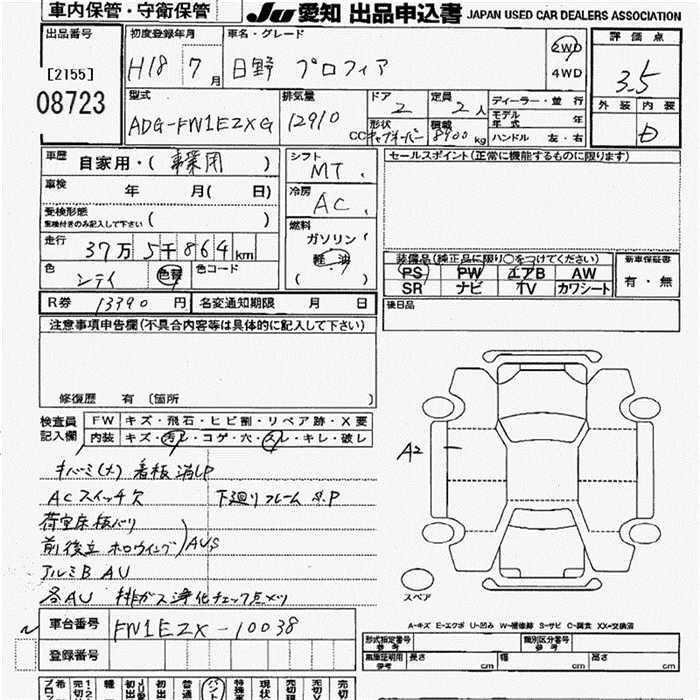 車内保管・守衛保管
JU 愛知 出品申込書 JAPAN USED CAR DEALERS ASSOCIATION
出品番号
[2155]
08723
初度登録年月
H18 7月
車名・グレード
日野 プロフィア
2WD
4WD
評価点
3.5
外装 内装
D
型式
ADG-FW1EZXG
排気量
12910 CC
ドア
2
定員
2人
形状
積載
8900 kg
ディーラー・並行
モデル年式 年
ハンドル 左・右
車歴 自家用・( 事業用 )
車検 年 月( 日)
受検形態
車検付きのみ記入して下さい ( )
走行 37万5千864km
色
色替
色コード
シフト
MT
冷房
AC
燃料
ガソリン
軽油
( )
セールスポイント(正常に機能するものに限ります)
装備品(純正品に限り○をつけてください)
PS PW エアB AW
SR ナビ TV カワシート
新車保証書
有・無
後日品
R券 13390円
名変通知期限 月 日
注意事項申告欄(不具合内容等は具体的に記入して下さい)
修復歴 有 〔箇所 〕
検査員記入欄
FW キズ・飛石・ヒビ割・リペア跡・X要
内装 キズ・汚レ・コゲ・穴・スレ・キレ・破レ
キバミ(大) 看板消しP
ACスイッチ欠 下廻りフレームS.P
荷室床板バリ
前後立 ホロウイング AUS
アルミB AU
各AU 排ガス浄化チェック点メツ
A2
スペア
A-キズ E-エクボ U-凹み W-補修跡 S-サビ C-腐食 XX-交換済
車台番号 FW1EZX-10038
登録番号
形式指定番号
参考
類別区分番号
参考
車庫証明用
参考
長さ cm
幅 cm
高さ cm